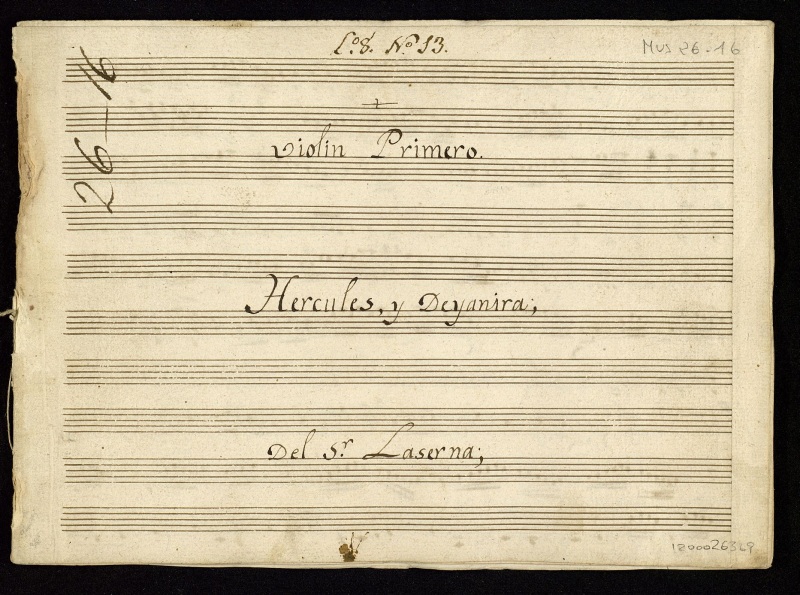 L.º 8. N.º 13.
Mus 26-16
26-16
+
Violin Primero.
Hercules, y Deyanira;
Del S.r Laserna;
1200026369